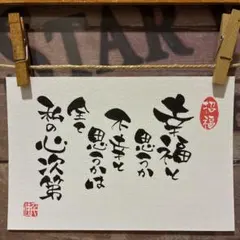 STAR
招福
幸福と
思うか
不幸と
思うかは
全て
私の心次第